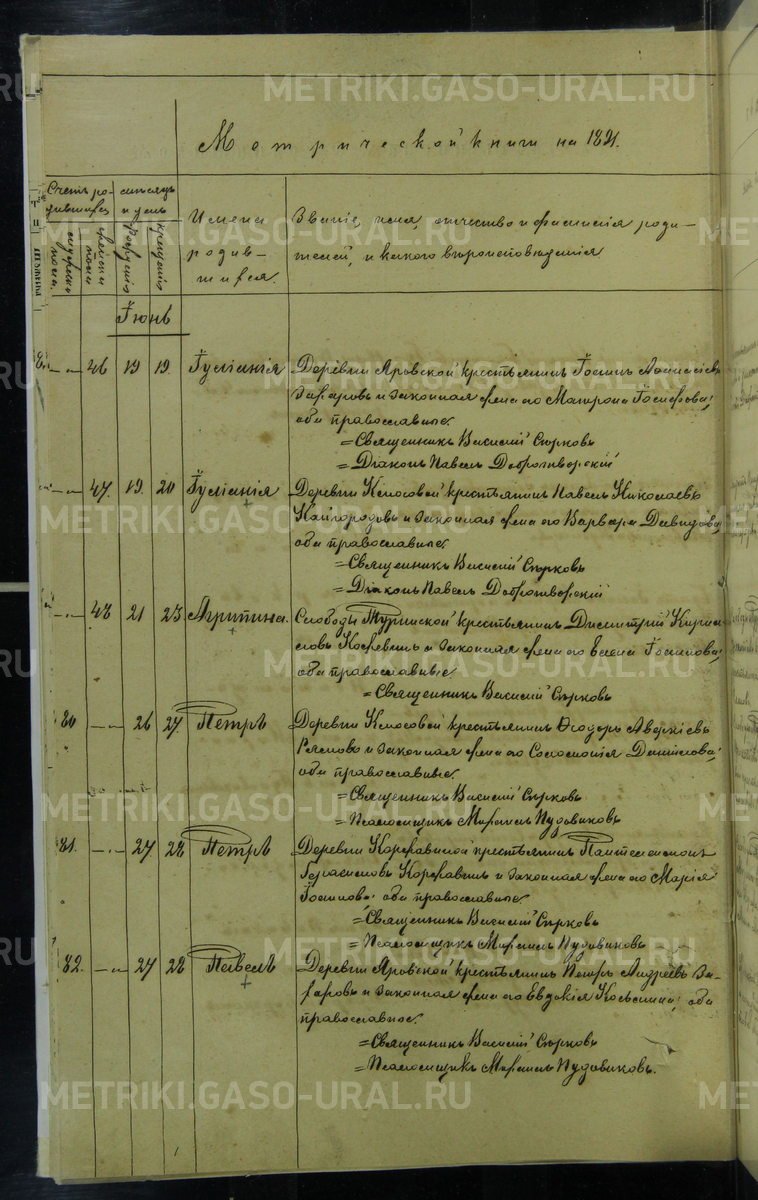 METRIKI.GASO-URAL.RU
Метрической книги на 1891.
Счетъ ро-
дившихся
мѣсяцъ
и день
Имена
родив-
шихся.
Званіе, имя, отчество и фамилія роди-
телей, и какого вѣроисповѣданія
мужеска
пола.
женска
пола
рожденія
крещенія
Іюнь
46 19 19. Іуліанія Деревни Яровской крестьянинъ Іоаннъ Аѳанасіевъ
и законная жена его Матрона Іосифова;
оба православные.
=Священникъ Василій Сѣрковъ
=Діаконъ Павелъ Добротворскій
47. 19. 20 Іуліанія Деревни Класовой крестьянинъ Павелъ Николаевъ
Кайгородовъ и законная жена его Варвара Давидова;
оба православные.
=Священникъ Василій Сѣрковъ
=Діаконъ Павелъ Добротворскій
48 21 23 Агрипина. Слободы Туринской крестьянинъ Димитрій Кирил-
ловъ и законная жена его Іосифова;
оба православные.
=Священникъ Василій Сѣрковъ
80 26 27. Петръ Деревни Класовой крестьянинъ Ѳеодоръ Аверкіевъ
и законная жена его Соломонія Даниилова;
оба православные.
=Священникъ Василій Сѣрковъ
=Псаломщикъ Михаилъ Пудовиковъ
81. 27. 28 Петръ Деревни крестьянинъ Пантелеимонъ
Герасимовъ и законная жена его Марія
оба православные.
=Священникъ Василій Сѣрковъ
=Псаломщикъ Михаилъ Пудовиковъ
82. 27 28 Павелъ Деревни Яровской крестьянинъ Петръ Андреевъ За-
харовъ и законная жена его Евдокія Косьмина; оба
православные.
=Священникъ Василій Сѣрковъ
=Псаломщикъ Михаилъ Пудовиковъ.